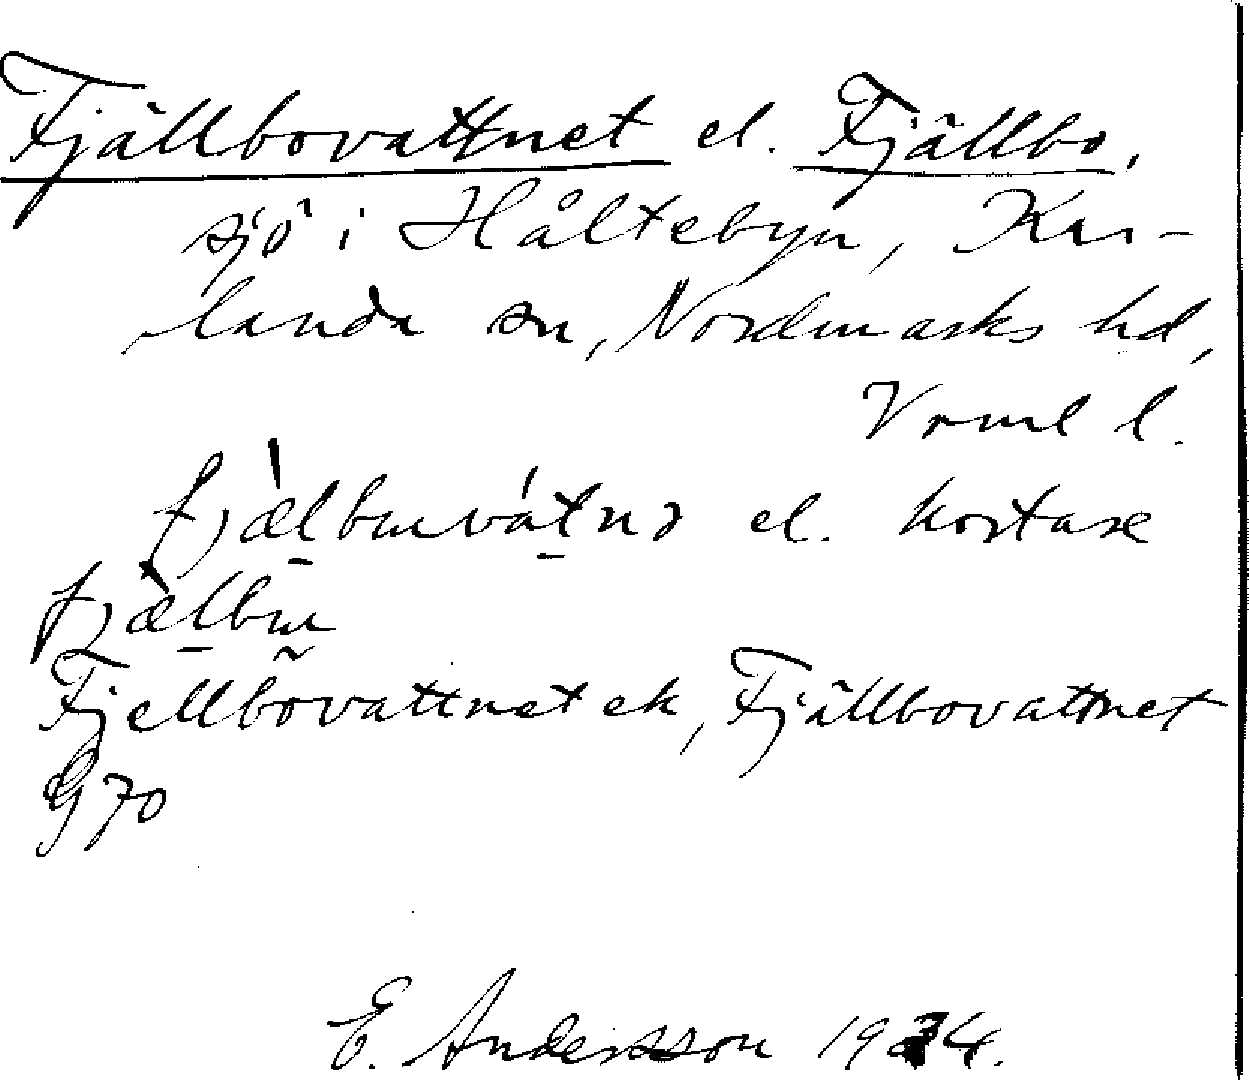 Fjällbovattnet el. Fjällbo,
sjö i Håltebyn, Kar-
landa sn, Nordmarks hd,
Vrml l.
fjæ̀lbɯvátnə el. kortare
fjæ̀lbɯ
Fjellbovattnet ek, Fjällbovattnet
G 70
E. Andersson 1934.